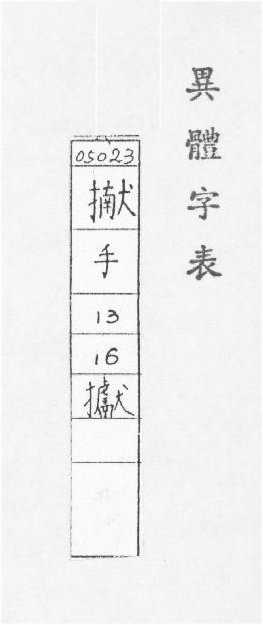 異體字表
05023
手
13
16